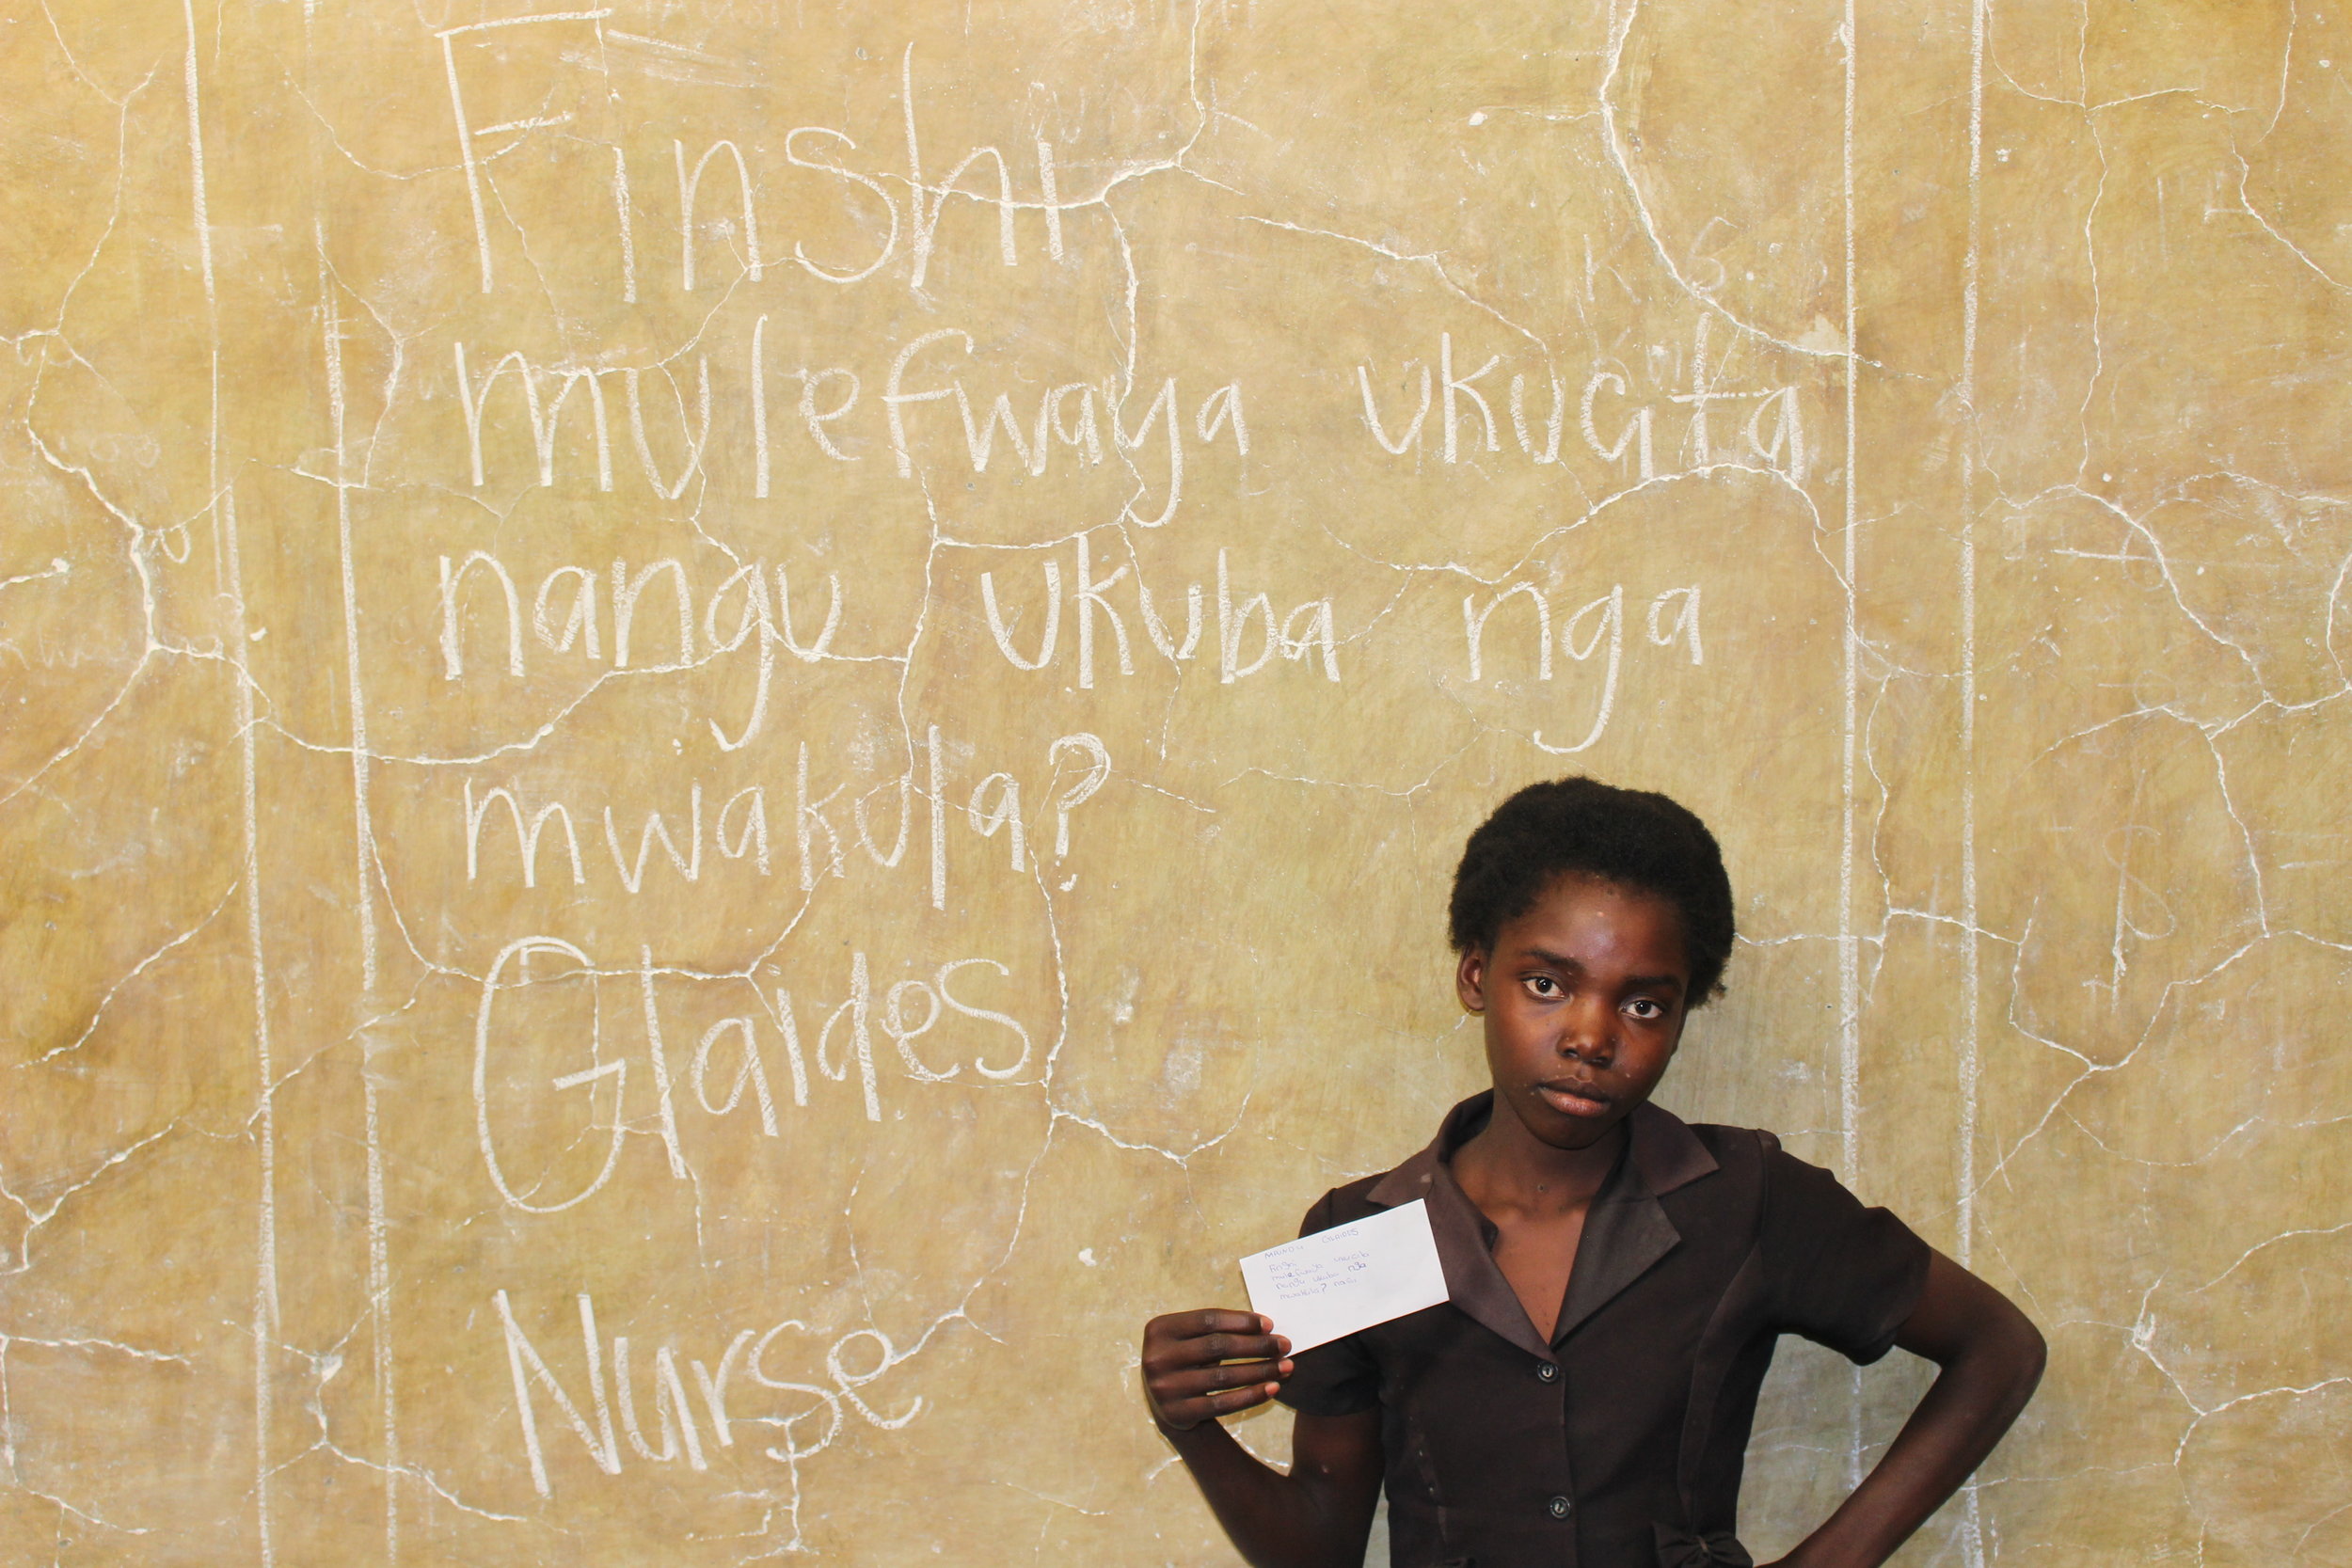 Finshi
mulefwaya ukucita
nangu ukuba nga
mwakula?
Glaides
Nurse
Glaides
Finshi
mulefwaya ukucita
nangu ukuba nga
mwakula?